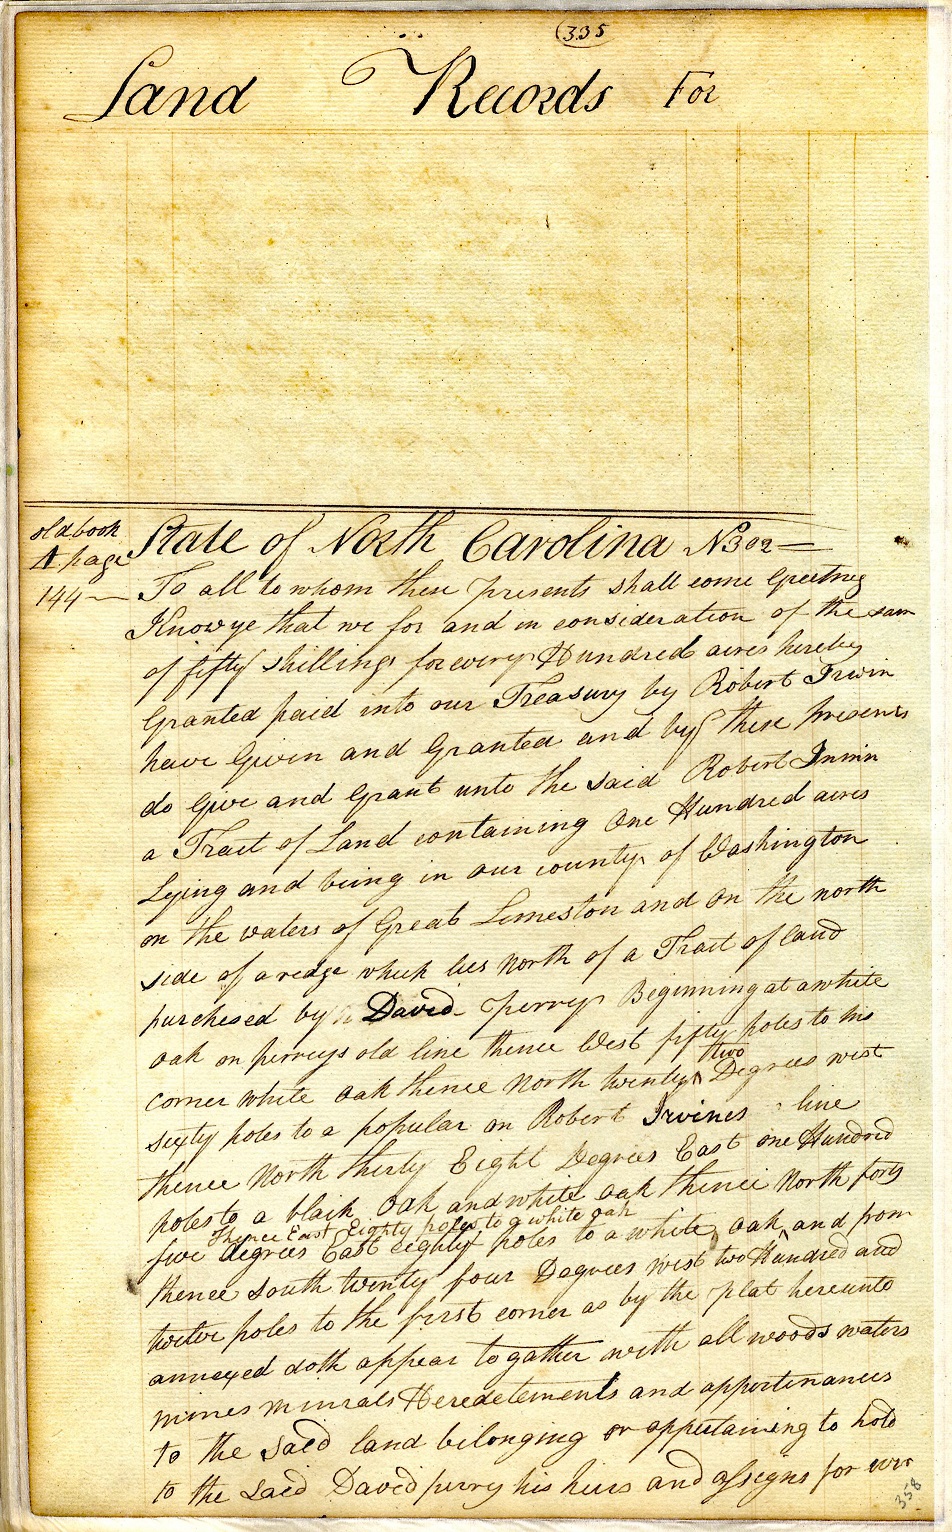 335
Land Records For
old book
A page
144
State of North Carolina No 302
To all to whom these presents shall come Greeting
Know ye that we for and in consideration of the sum
of fifty shillings for every Hundred acres hereby
Granted paid into our Treasury by Robert Irwin
have Given and Granted and by these presents
do Give and Grant unto the said Robert Irwin
a Tract of Land containing One Hundred acres
Lying and being in our county of Washington
on the waters of Great Limeston and on the north
side of a redge which lies North of a Tract of land
purchesed by David perry Beginning at a white
oak on perreys old line thence West fifty poles to his
corner white oak thence North twenty two Degrees west
sixty poles to a popular on Robert Irvines line
thence North thirty Eight Degrees East one Hundred
poles to a black oak and white oak thence North forty
Thence East Eighty poles to a white oak
five degrees East eighty poles to a white oak and from
thence south twenty four Degrees west two Hundred and
twelve poles to the first corner as by the plat hereunto
annexed doth appear to gather with all woods waters
mines minrals Heredetements and appertinances
to the said land belonging or appertaining to hold
to the said David perry his heirs and assigns for ever
358